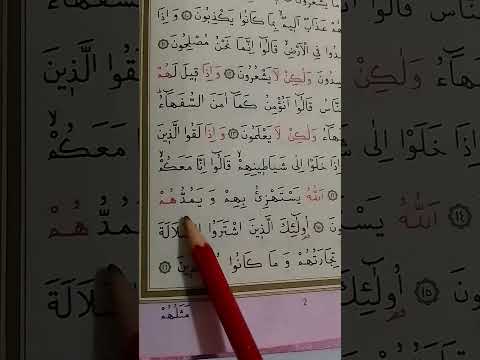 هُمْ عَذَابٌ اَلِيمٌ بِمَا كَانُوا يَكْذِبُونَ ١٠ وَ اِذَا
دُوا فِي الْاَرْضِ قَالُٓوا اِنَّمَا نَحْنُ مُصْلِحُونَ ١١
سِدُونَ وَلٰكِنْ لَا يَشْعُرُونَ ١٢ وَ اِذَا قِيلَ لَهُمْ
النَّاسُ قَالُٓوا اَنُؤْمِنُ كَمَٓا اٰمَنَ السُّفَهَٓاءُ
هَٓاءُ وَلٰكِنْ لَا يَعْلَمُونَ ١٣ وَ اِذَا لَقُوا الَّذِينَ
اِذَا خَلَوْا اِلٰى شَيَاطِينِهِمْ قَالُٓوا اِنَّا مَعَكُمْ
١٤ اَللّٰهُ يَسْتَهْزِئُ بِهِمْ وَ يَمُدُّهُمْ
نَ ١٥ اُولٰٓئِكَ الَّذِينَ اشْتَرَوُا الضَّلَالَةَ
تِجَارَتُهُمْ وَ مَا كَانُوا ١٦
2
مَثَلُهُمْ